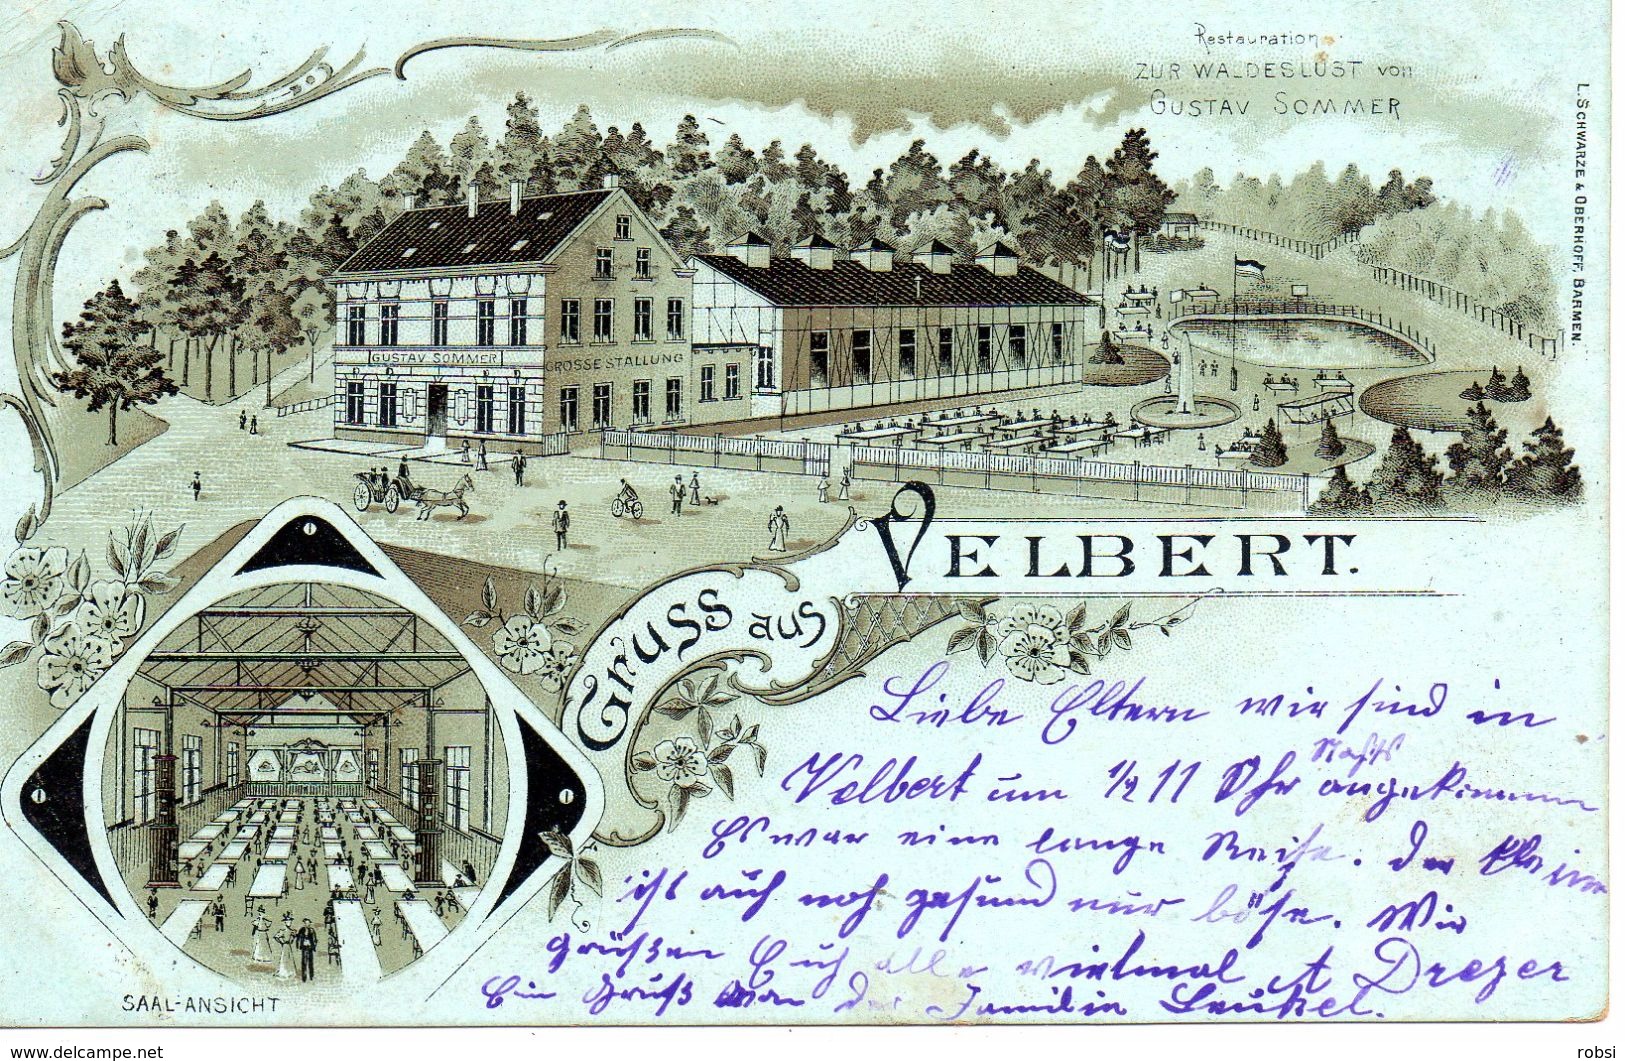 Restauration
ZUR WALDESLUST von
GUSTAV SOMMER
L. SCHWARZE & OBERHOFF, BARMEN.
GUSTAV SOMMER
GROSSE STALLUNG
Gruss aus
VELBERT.
SAAL-ANSICHT
Liebe Eltern wir sind in
Nachts
Velbert um 1/2 11 Uhr angekommen
Es war eine lange Reise. Der kleine
ist auch noch gesund nur böse. Wir
grüßen Euch alle vielmal A Drezer
Ein Gruß von der Familie
delcampe.net
robsi